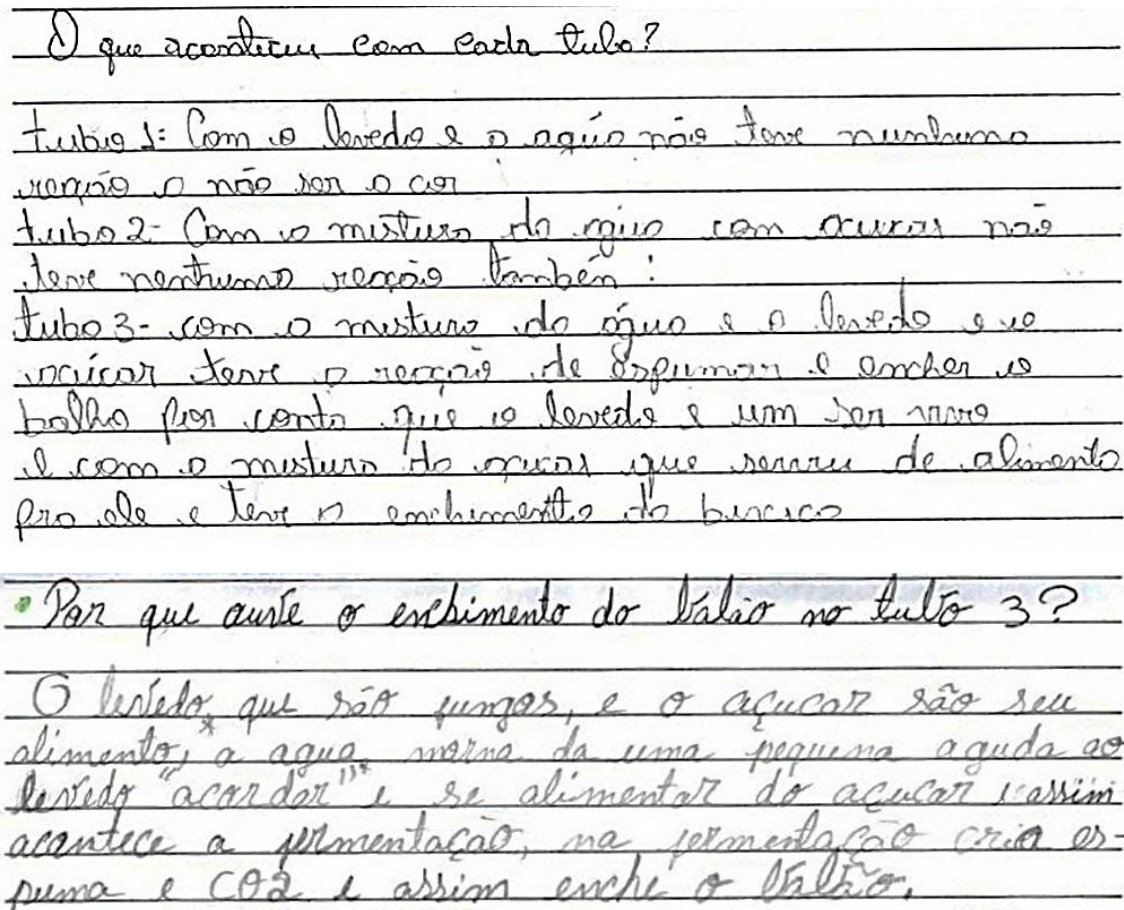 O que aconteceu com cada tubo?
tubo 1: Com o levedo e a agúa não teve nenhuma
reação a não ser a cor
tubo 2- Com a mistura da agua com acucar não
teve nenhuma reação também!
tubo 3- com a mistura da água e a levedo e o
açúcar teve a reação de espumar e encher o
balho por conta que o levedo e um ser vivo
e com a mistura do açucar que serviu de alimento
pro ele e teve o enchimento da
• Por que ouve o enchimento do balão no tubo 3?
O levedo* que são fungos, e o açucar são seu
alimento, a agua morna da uma pequena aguda ao
levedo "acordar"* e se alimentar do açucar e assim
acontece a fermentação, na fermentação cria es-
puma e CO2 e assim enche o balão.